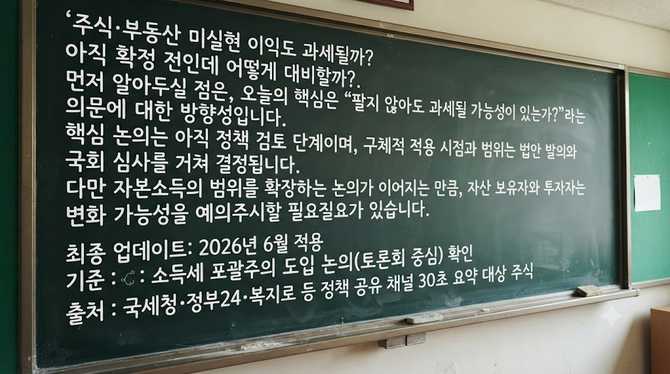 ‘주식·부동산 미실현 이익도 과세될까?
아직 확정 전인데 어떻게 대비할까?.
먼저 알아두실 점은, 오늘의 핵심은 “팔지 않아도 과세될 가능성이 있는가?”라는
의문에 대한 방향성입니다.
핵심 논의는 아직 정책 검토 단계이며, 구체적 적용 시점과 범위는 법안 발의와
국회 심사를 거쳐 결정됩니다.
다만 자본소득의 범위를 확장하는 논의가 이어지는 만큼, 자산 보유자와 투자자는
변화 가능성을 예의주시할 필요질요가 있습니다.
최종 업데이트: 2026년 6월 적용
기준 : : 소득세 포괄주의 도입 논의(토론회 중심) 확인
출처 : 국세청·정부24·복지로 등 정책 공유 채널 30초 요약 대상 주식